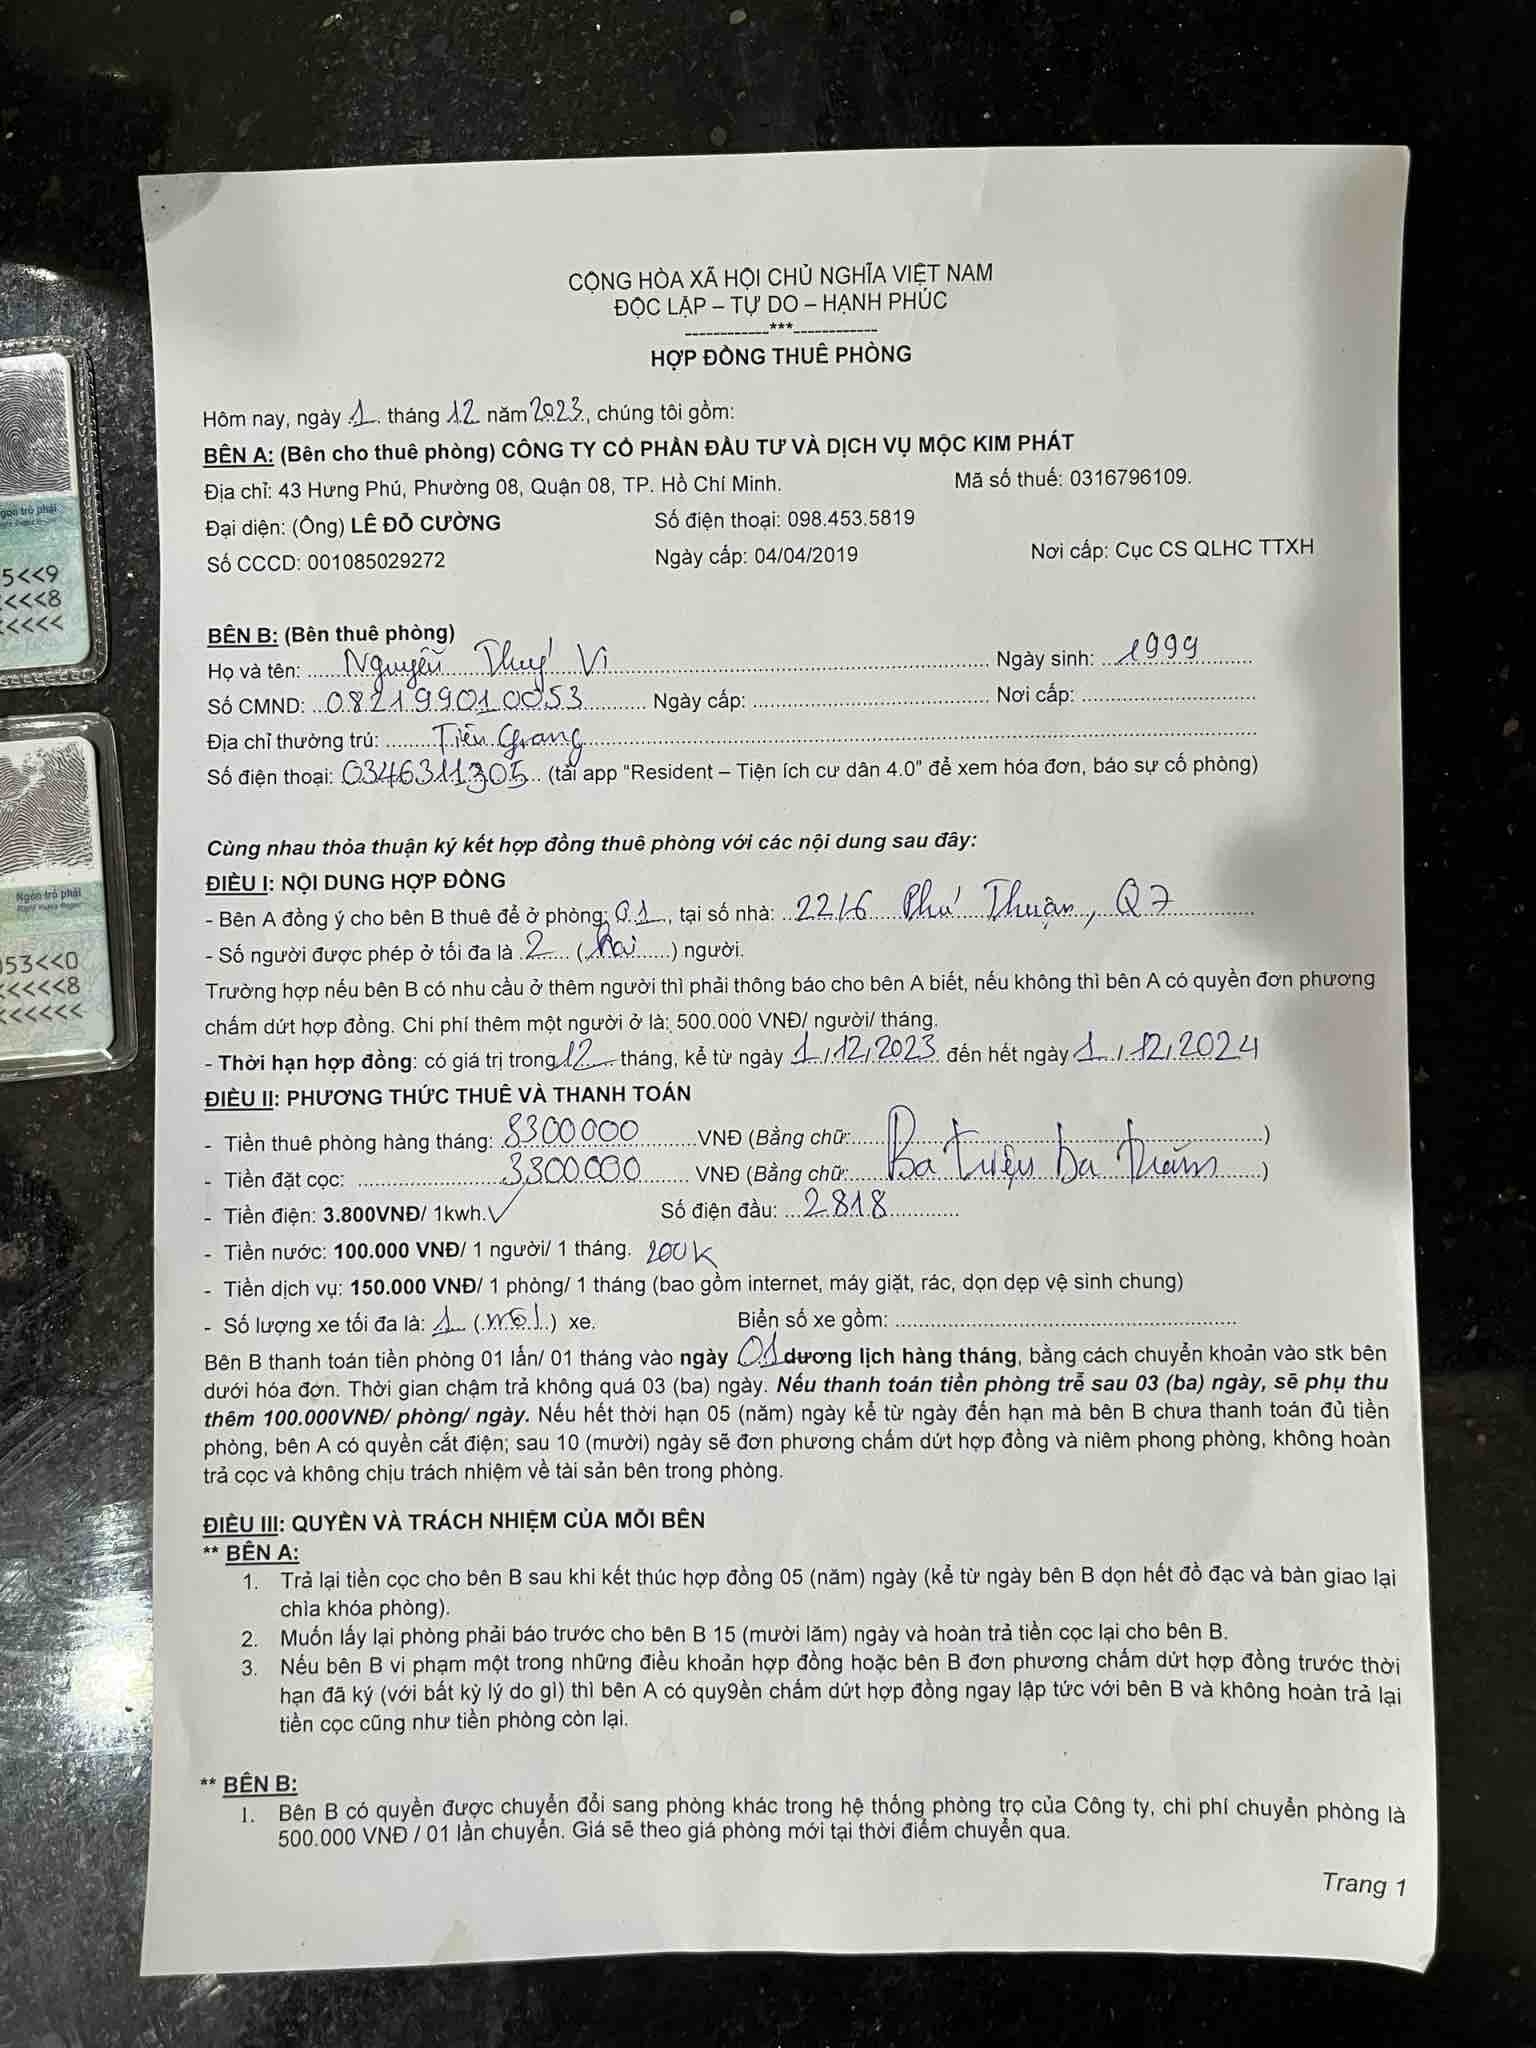 CỘNG HÒA XÃ HỘI CHỦ NGHĨA VIỆT NAM
ĐỘC LẬP – TỰ DO – HẠNH PHÚC
------------***------------
HỢP ĐỒNG THUÊ PHÒNG
Hôm nay, ngày 1 tháng 12 năm 2023, chúng tôi gồm:
BÊN A: (Bên cho thuê phòng) CÔNG TY CỔ PHẦN ĐẦU TƯ VÀ DỊCH VỤ MỘC KIM PHÁT
Địa chỉ: 43 Hưng Phú, Phường 08, Quận 08, TP. Hồ Chí Minh. Mã số thuế: 0316796109.
Đại diện: (Ông) LÊ ĐỖ CƯỜNG Số điện thoại: 098.453.5819
Số CCCD: 001085029272 Ngày cấp: 04/04/2019 Nơi cấp: Cục CS QLHC TTXH
BÊN B: (Bên thuê phòng)
Họ và tên: Nguyễn Thuý Vi Ngày sinh: 1999
Số CMND: 082199010053 Ngày cấp: Nơi cấp:
Địa chỉ thường trú: Tiền Giang
Số điện thoại: 0346311305 (tải app "Resident – Tiện ích cư dân 4.0" để xem hóa đơn, báo sự cố phòng)
Cùng nhau thỏa thuận ký kết hợp đồng thuê phòng với các nội dung sau đây:
ĐIỀU I: NỘI DUNG HỢP ĐỒNG
- Bên A đồng ý cho bên B thuê để ở phòng: 01, tại số nhà: 22/6 Phú Thuận, Q7
- Số người được phép ở tối đa là 2 (hai) người.
Trường hợp nếu bên B có nhu cầu ở thêm người thì phải thông báo cho bên A biết, nếu không thì bên A có quyền đơn phương
chấm dứt hợp đồng. Chi phí thêm một người ở là: 500.000 VNĐ/ người/ tháng.
- Thời hạn hợp đồng: có giá trị trong 12 tháng, kể từ ngày 1/12/2023 đến hết ngày 1/12/2024
ĐIỀU II: PHƯƠNG THỨC THUÊ VÀ THANH TOÁN
- Tiền thuê phòng hàng tháng: 3300000 VNĐ (Bằng chữ: )
- Tiền đặt cọc: 3300000 VNĐ (Bằng chữ: Ba triệu ba trăm)
- Tiền điện: 3.800VNĐ/ 1kwh. ✓ Số điện đầu: 2818
- Tiền nước: 100.000 VNĐ/ 1 người/ 1 tháng. 200K
- Tiền dịch vụ: 150.000 VNĐ/ 1 phòng/ 1 tháng (bao gồm internet, máy giặt, rác, dọn dẹp vệ sinh chung)
- Số lượng xe tối đa là: 1 (một) xe. Biển số xe gồm:
Bên B thanh toán tiền phòng 01 lần/ 01 tháng vào ngày 01 dương lịch hàng tháng, bằng cách chuyển khoản vào stk bên
dưới hóa đơn. Thời gian chậm trả không quá 03 (ba) ngày. Nếu thanh toán tiền phòng trễ sau 03 (ba) ngày, sẽ phụ thu
thêm 100.000VNĐ/ phòng/ ngày. Nếu hết thời hạn 05 (năm) ngày kể từ ngày đến hạn mà bên B chưa thanh toán đủ tiền
phòng, bên A có quyền cắt điện; sau 10 (mười) ngày sẽ đơn phương chấm dứt hợp đồng và niêm phong phòng, không hoàn
trả cọc và không chịu trách nhiệm về tài sản bên trong phòng.
ĐIỀU III: QUYỀN VÀ TRÁCH NHIỆM CỦA MỖI BÊN
** BÊN A:
1. Trả lại tiền cọc cho bên B sau khi kết thúc hợp đồng 05 (năm) ngày (kể từ ngày bên B dọn hết đồ đạc và bàn giao lại
chìa khóa phòng).
2. Muốn lấy lại phòng phải báo trước cho bên B 15 (mười lăm) ngày và hoàn trả tiền cọc lại cho bên B.
3. Nếu bên B vi phạm một trong những điều khoản hợp đồng hoặc bên B đơn phương chấm dứt hợp đồng trước thời
hạn đã ký (với bất kỳ lý do gì) thì bên A có quy9ền chấm dứt hợp đồng ngay lập tức với bên B và không hoàn trả lại
tiền cọc cũng như tiền phòng còn lại.
** BÊN B:
1. Bên B có quyền được chuyển đổi sang phòng khác trong hệ thống phòng trọ của Công ty, chi phí chuyển phòng là
500.000 VNĐ / 01 lần chuyển. Giá sẽ theo giá phòng mới tại thời điểm chuyển qua.
Trang 1
Ngón trỏ phải
5<<9
<<<8
<<<<
Ngón trỏ phải
Right Index finger
053<<0
<<<<<8
<<<<<<